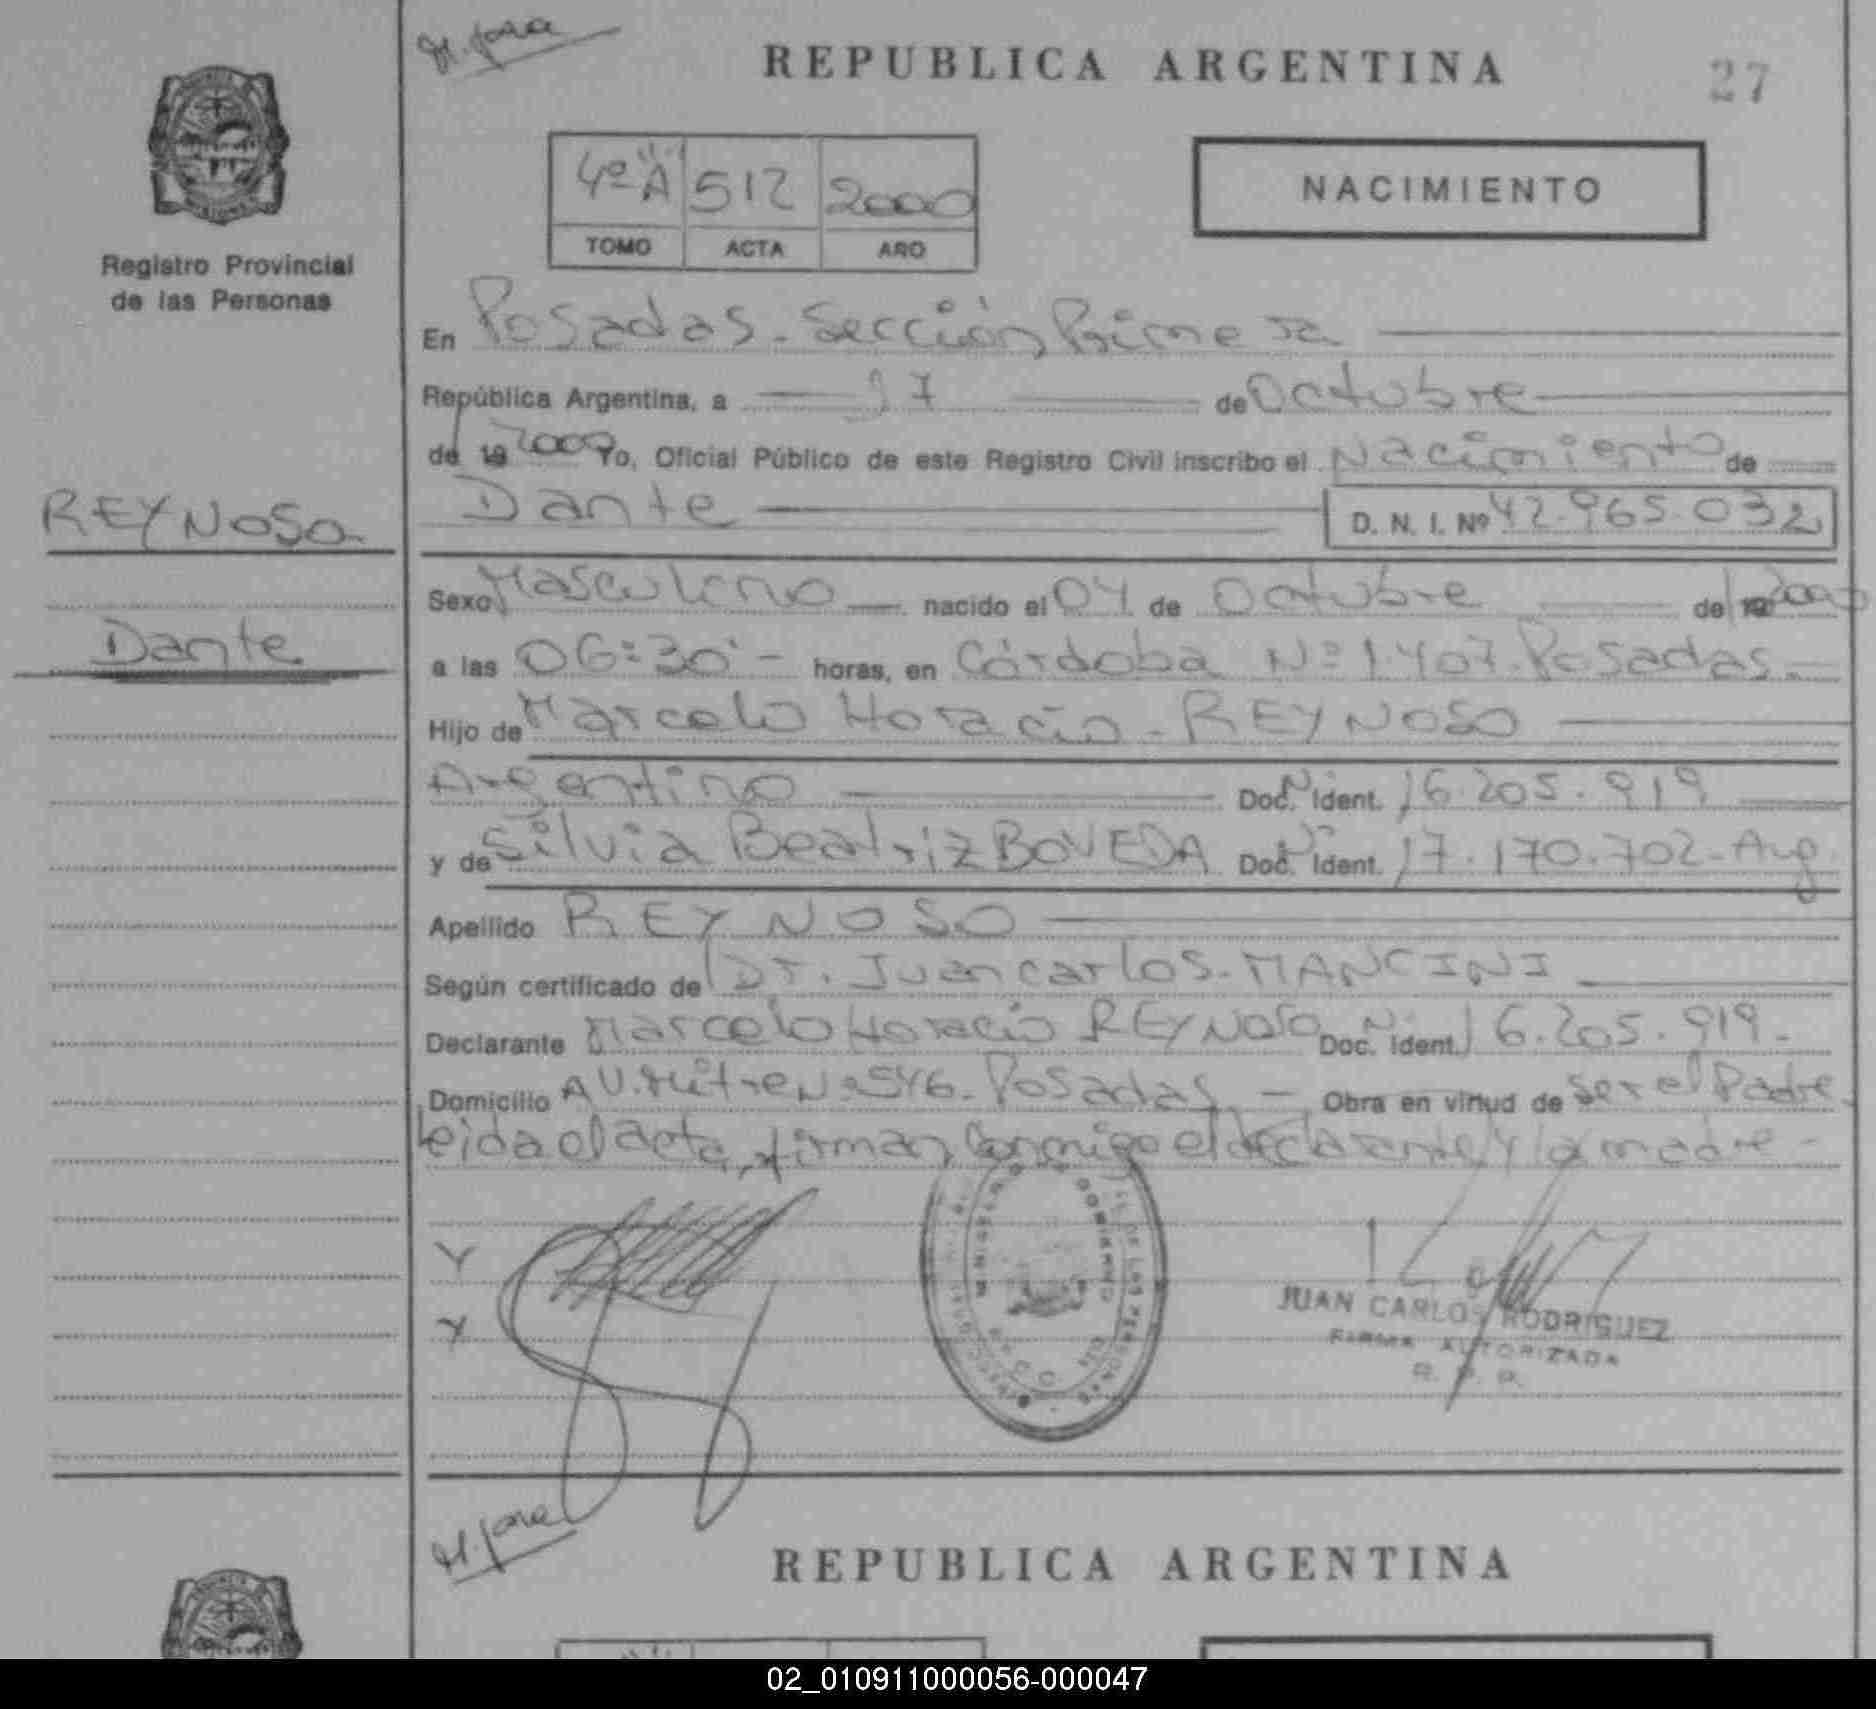 M. José
REPUBLICA ARGENTINA
27
4º "A" 512 2000
TOMO ACTA AÑO
NACIMIENTO
Registro Provincial
de las Personas
En Posadas - Sección Primera
República Argentina, a 17 de Octubre
de 19 2000 Yo, Oficial Público de este Registro Civil inscribo el Nacimiento de
REYNOSO
Dante D. N. I. Nº 42.965.032
Sexo Masculino nacido el 04 de Octubre de 19 2000
Dante
a las 06:30 - horas, en Córdoba Nº 1.407. Posadas. -
Hijo de Marcelo Horacio - REYNOSO
Argentino Doc. Ident. 16.205.919
y de Silvia Beatriz BOVEDA Doc. Ident. 17.170.702 - Arg.
Apellido REYNOSO
Según certificado de Dr. Juan Carlos - MANCINI
Declarante Marcelo Horacio REYNOSO Doc. Ident. 16.205.919.-
Domicilio AV. Mitre Nº 546. Posadas - Obra en virtud de ser el Padre.
Leida el acta, firman conmigo el declarante y la madre -
JUAN CARLOS RODRIGUEZ
FIRMA AUTORIZADA
R. P. P.
REPUBLICA ARGENTINA
02_010911000056-000047